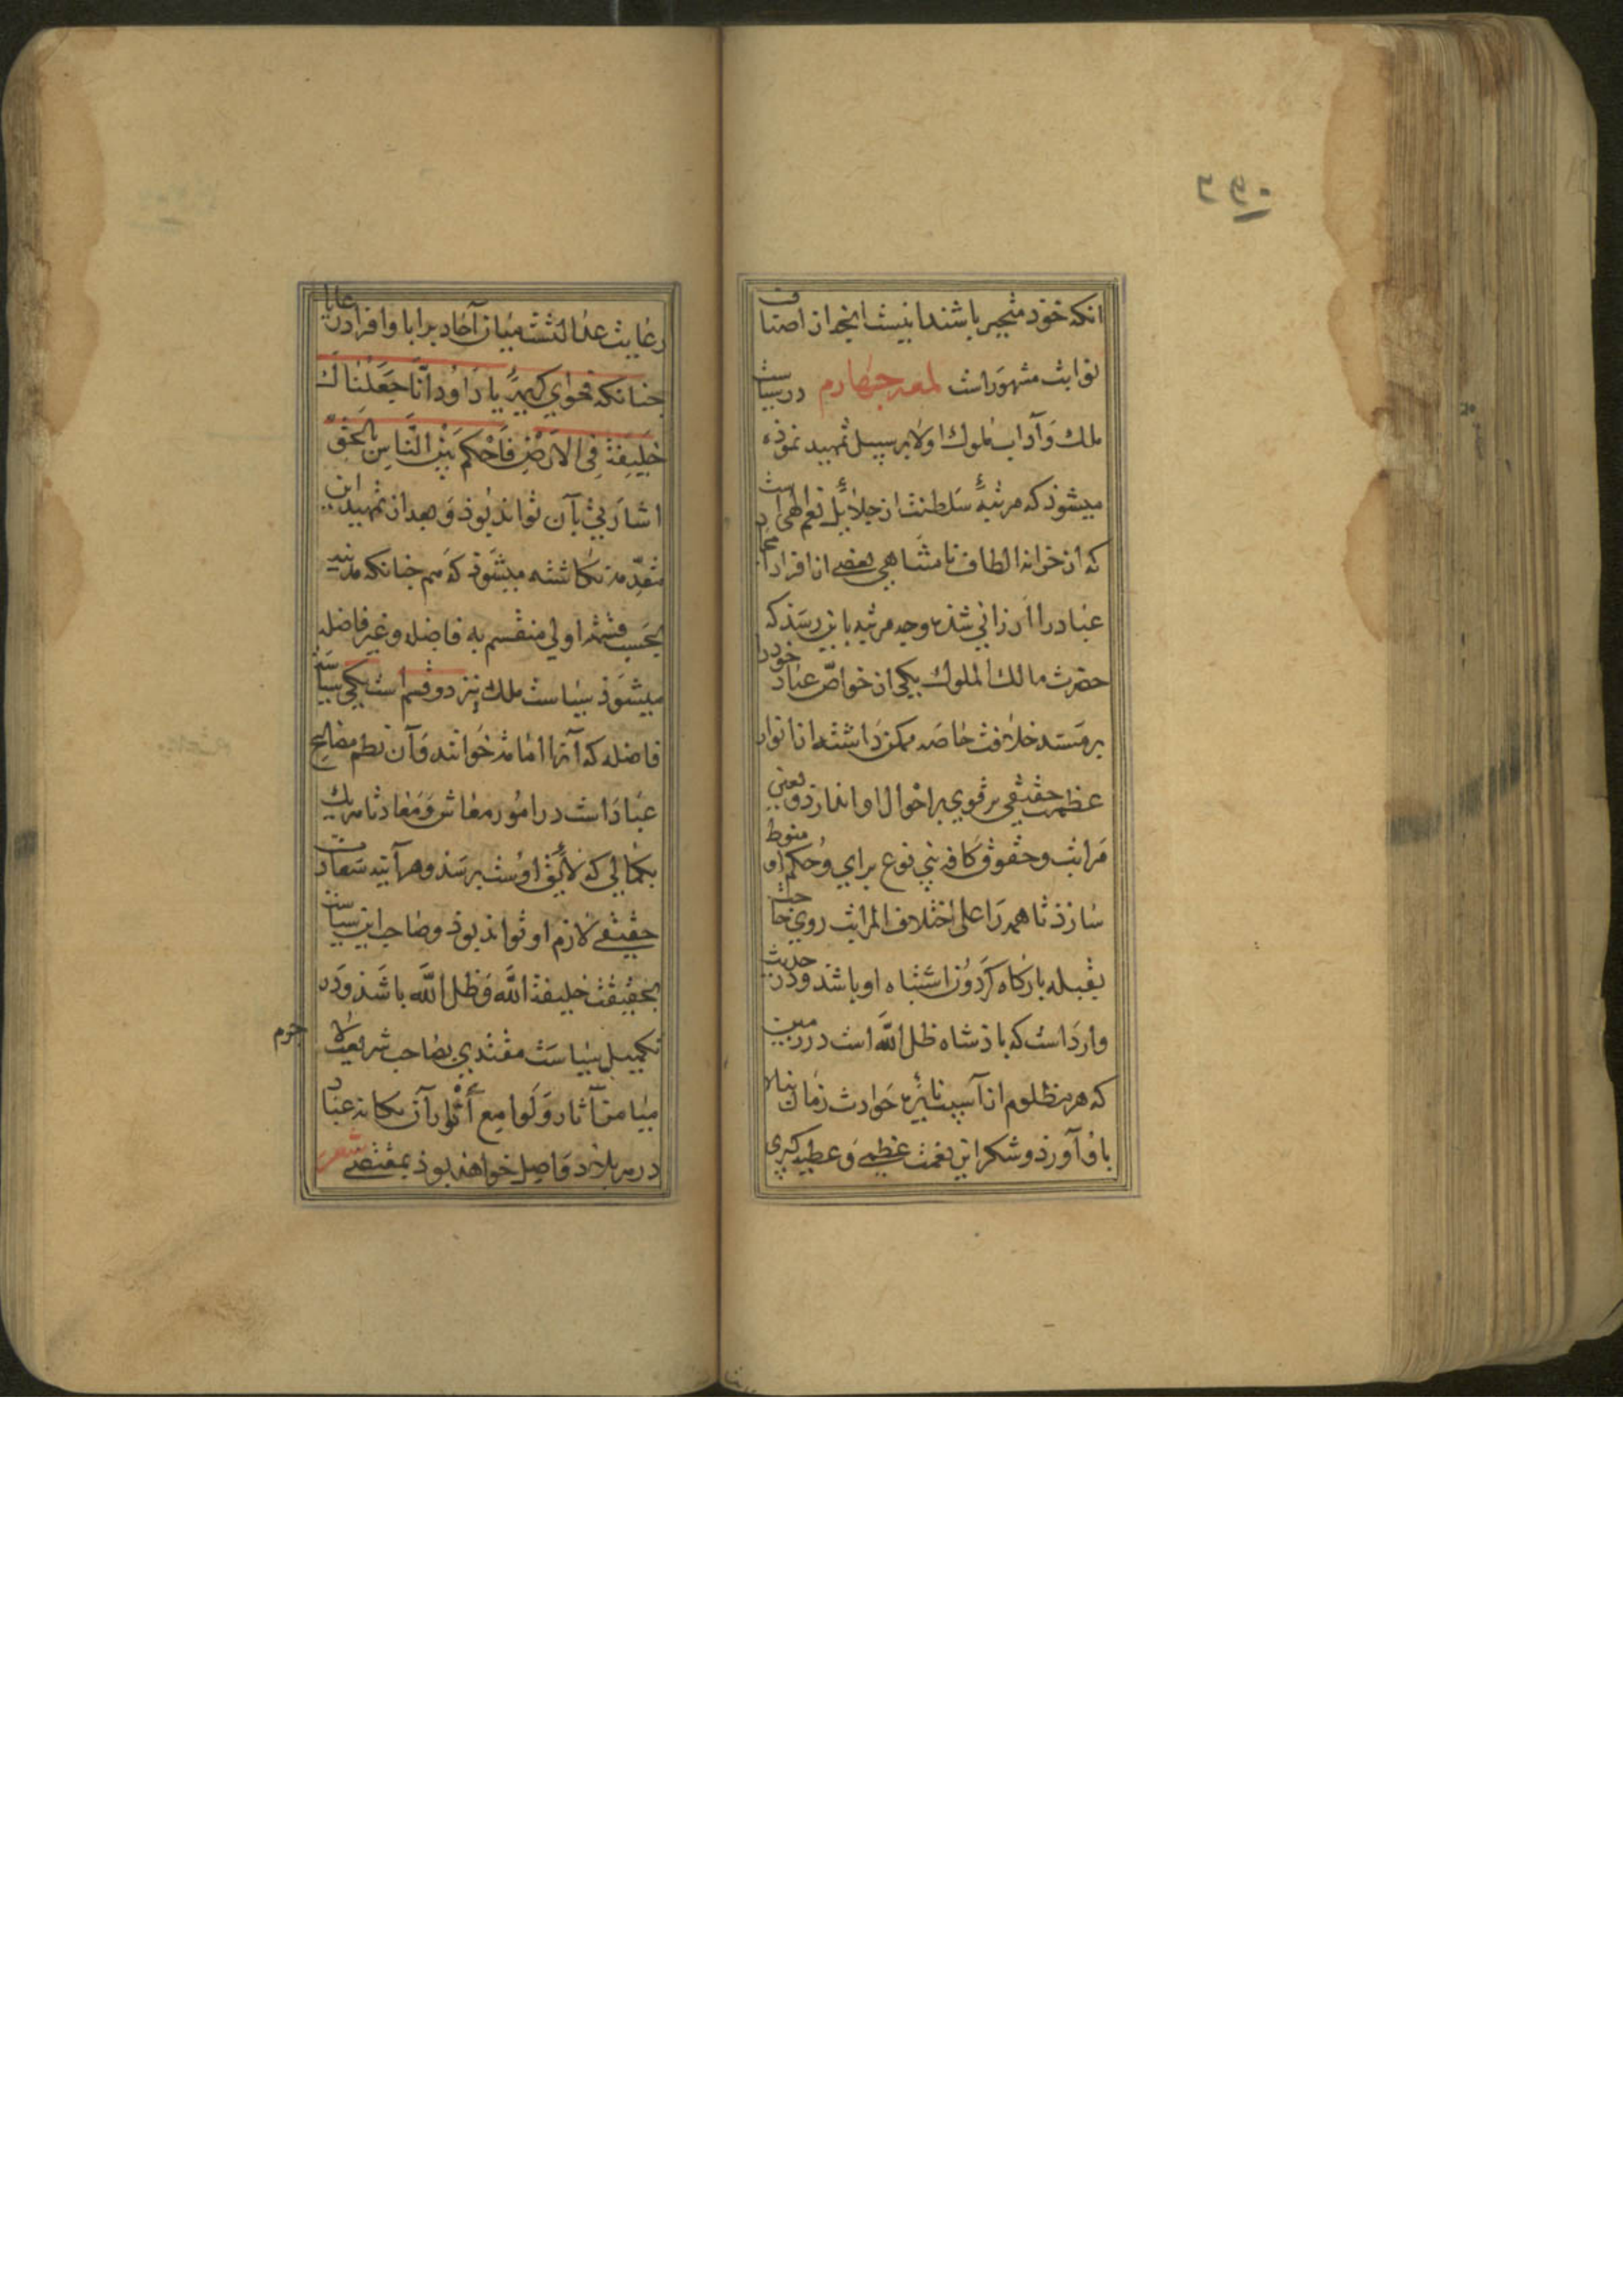 ۲۹۰
انکه خود متحیر باشند اینست انچه از اصناف
نوابت مشهورست لمعه چهارم در سیاست
ملک و آداب ملوک اولا بر سبیل تمهید نموده
میشوذ که مرتبهٔ سلطنت از جلایل نعم الهی است
که از خزانه الطاف نامتناهی بعضی از افراد امجاد
عباد را ارزانی شده وچه مرتبه باین رسد که
حضرت مالک الملوک یکی از خواصّ عباد خود را
بر مسند خلافت خاصه ممکن داشته از انوار
عظمت حقیقی پرتوی بر احوال او اندازد و تعیین
مراتب وحقوق کافه بنی نوع برای و حکم او منوط
سازذ تا همه را علی اختلاف المراتب روی حاجت
بقبله بارکاه کردون اشتباه او باشد ودر حدیث
وارد است که باذشاه ظل الله است در زمین
که هر مظلوم از آسیب نایره حوادث زمان پناه
باو آورذ و شکر این نعمت عظمی و عطیه کبری
رعایت عدالتست میان آحاد برایا و افراد رعایا
جنانکه فحوای کریمه یا دَاوُد انَّا جَعَلْنَاكَ
خَلِيفَة فِى الاَرْضِ فَاحْكم بَيْنَ النَّاسِ بِالحَقِّ
اشارتی بآن تواند بوذ و بعد از تمهید این
مقدّمه نکاشته میشوذ که هم جنانکه مدینه
بحسب قسمت اولی منقسم به فاضله وغیر فاضله
میشوذ سیاست ملک نیز دو قسم است یکی سیاست
فاضله که آنرا امامت خوانند و آن نظم مصالح
عباد است در امور معاش و معاد تا هر یک
بکمالی که لایق اوست برسذ وهرآینه سعادت
حقیقی لازم او تواند بوذ وصاحب این سیاست
بحقیقت خلیفة الله و ظل الله باشذ و در
تکمیل سیاست مقتدی بصاحب شریعت لا جرم
میامن آثار و لوامع أنوار آن بکافه عباد
در هر بلاد واصل خواهد بوذ بمقتضی شعر